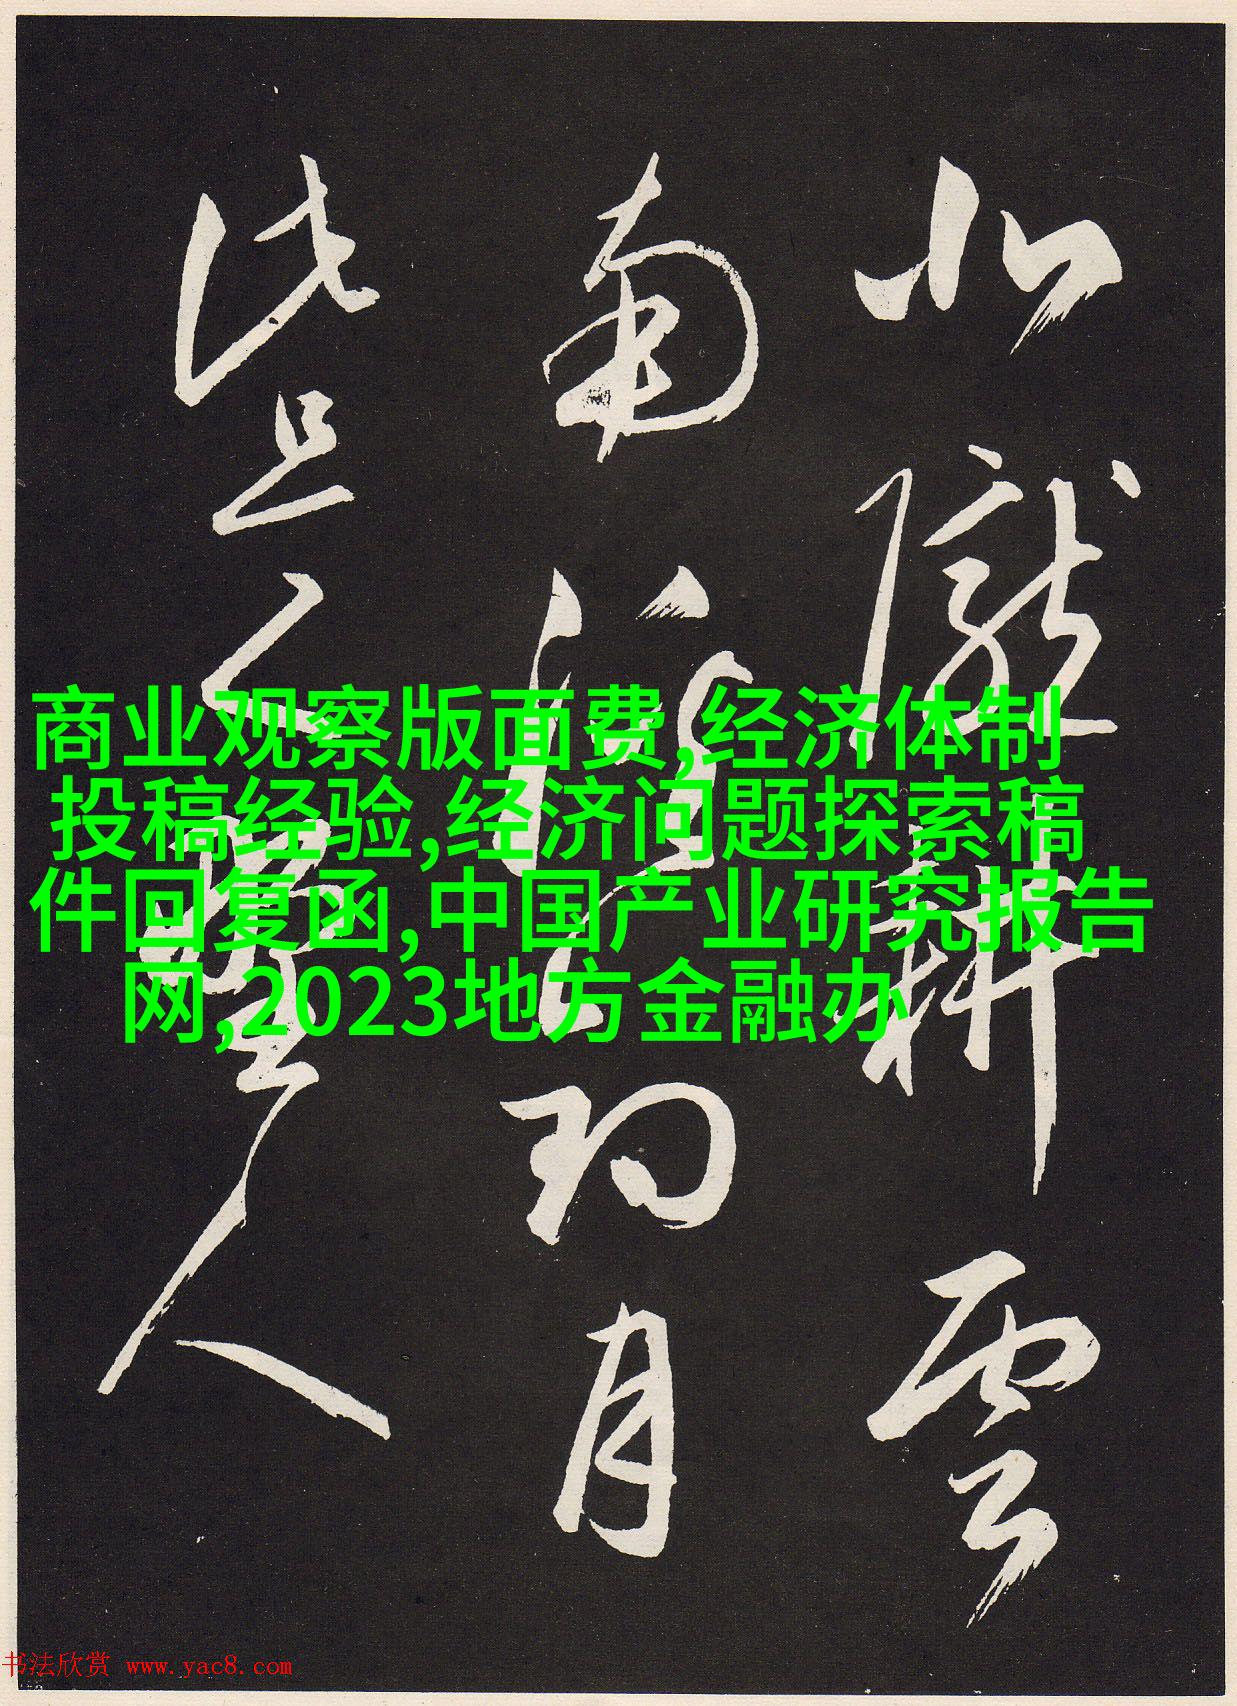 北隴耕雲
南溪釣月
此是野人
商业观察版面费,经济体制
投稿经验,经济问题探索稿
件回复函,中国产业研究报告
网,2023地方金融办
书法欣赏 www.yac8.com